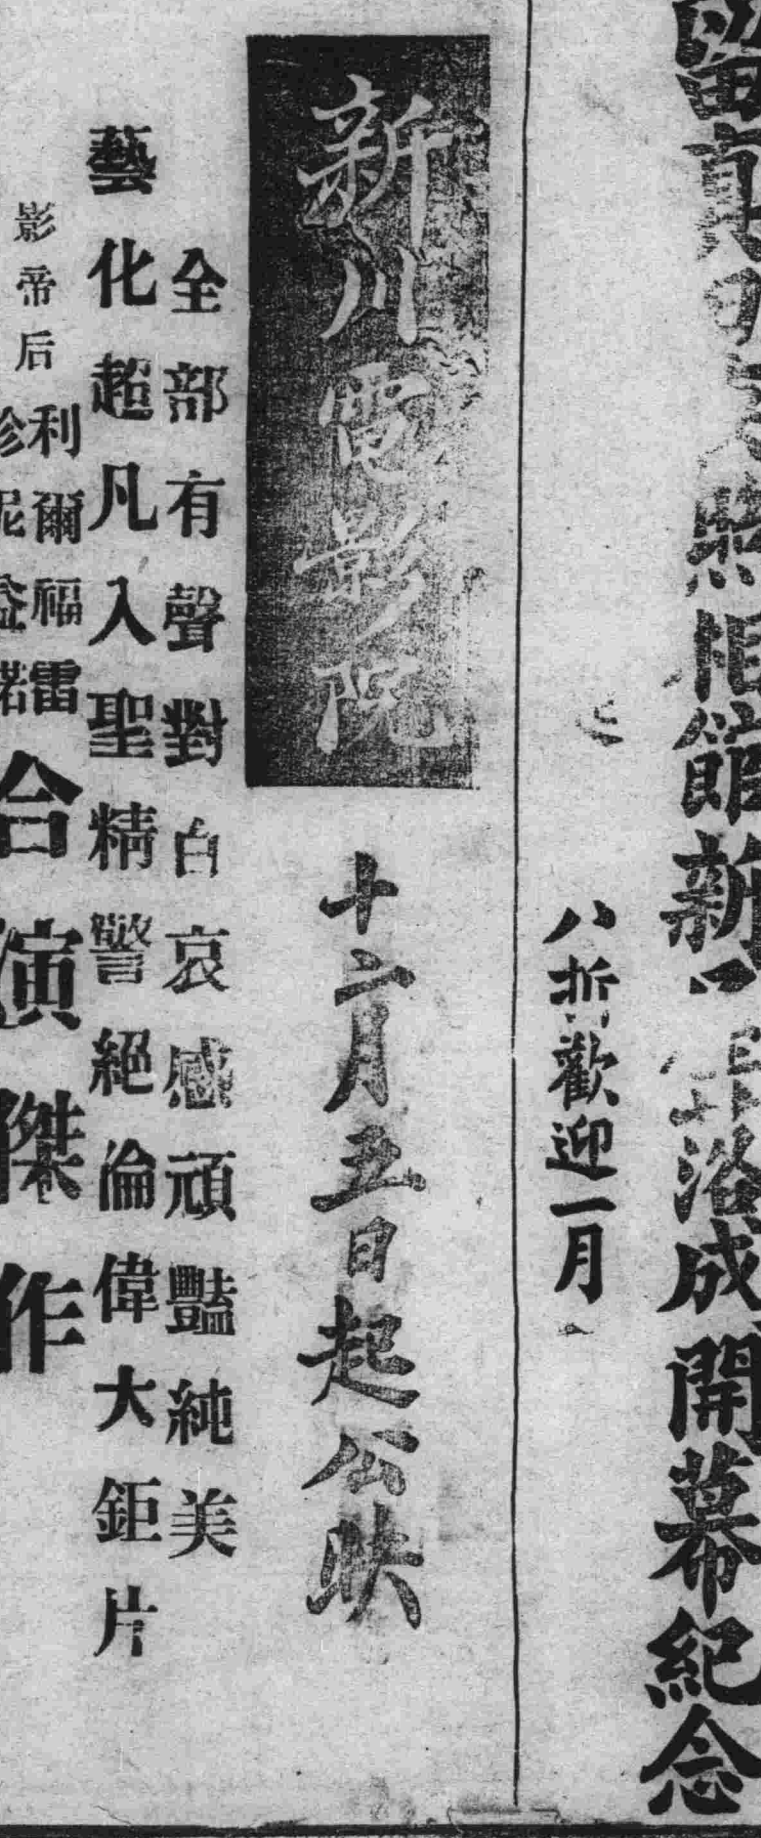 照相館新
落成開幕紀念
八折歡迎一月
新川電影院
十六月五日起公映
全部有聲對白哀感頑豔純美
藝化超凡入聖精警絕倫偉大鉅片
影帝后
利爾福雷
珍妮蓋諾
合演傑作